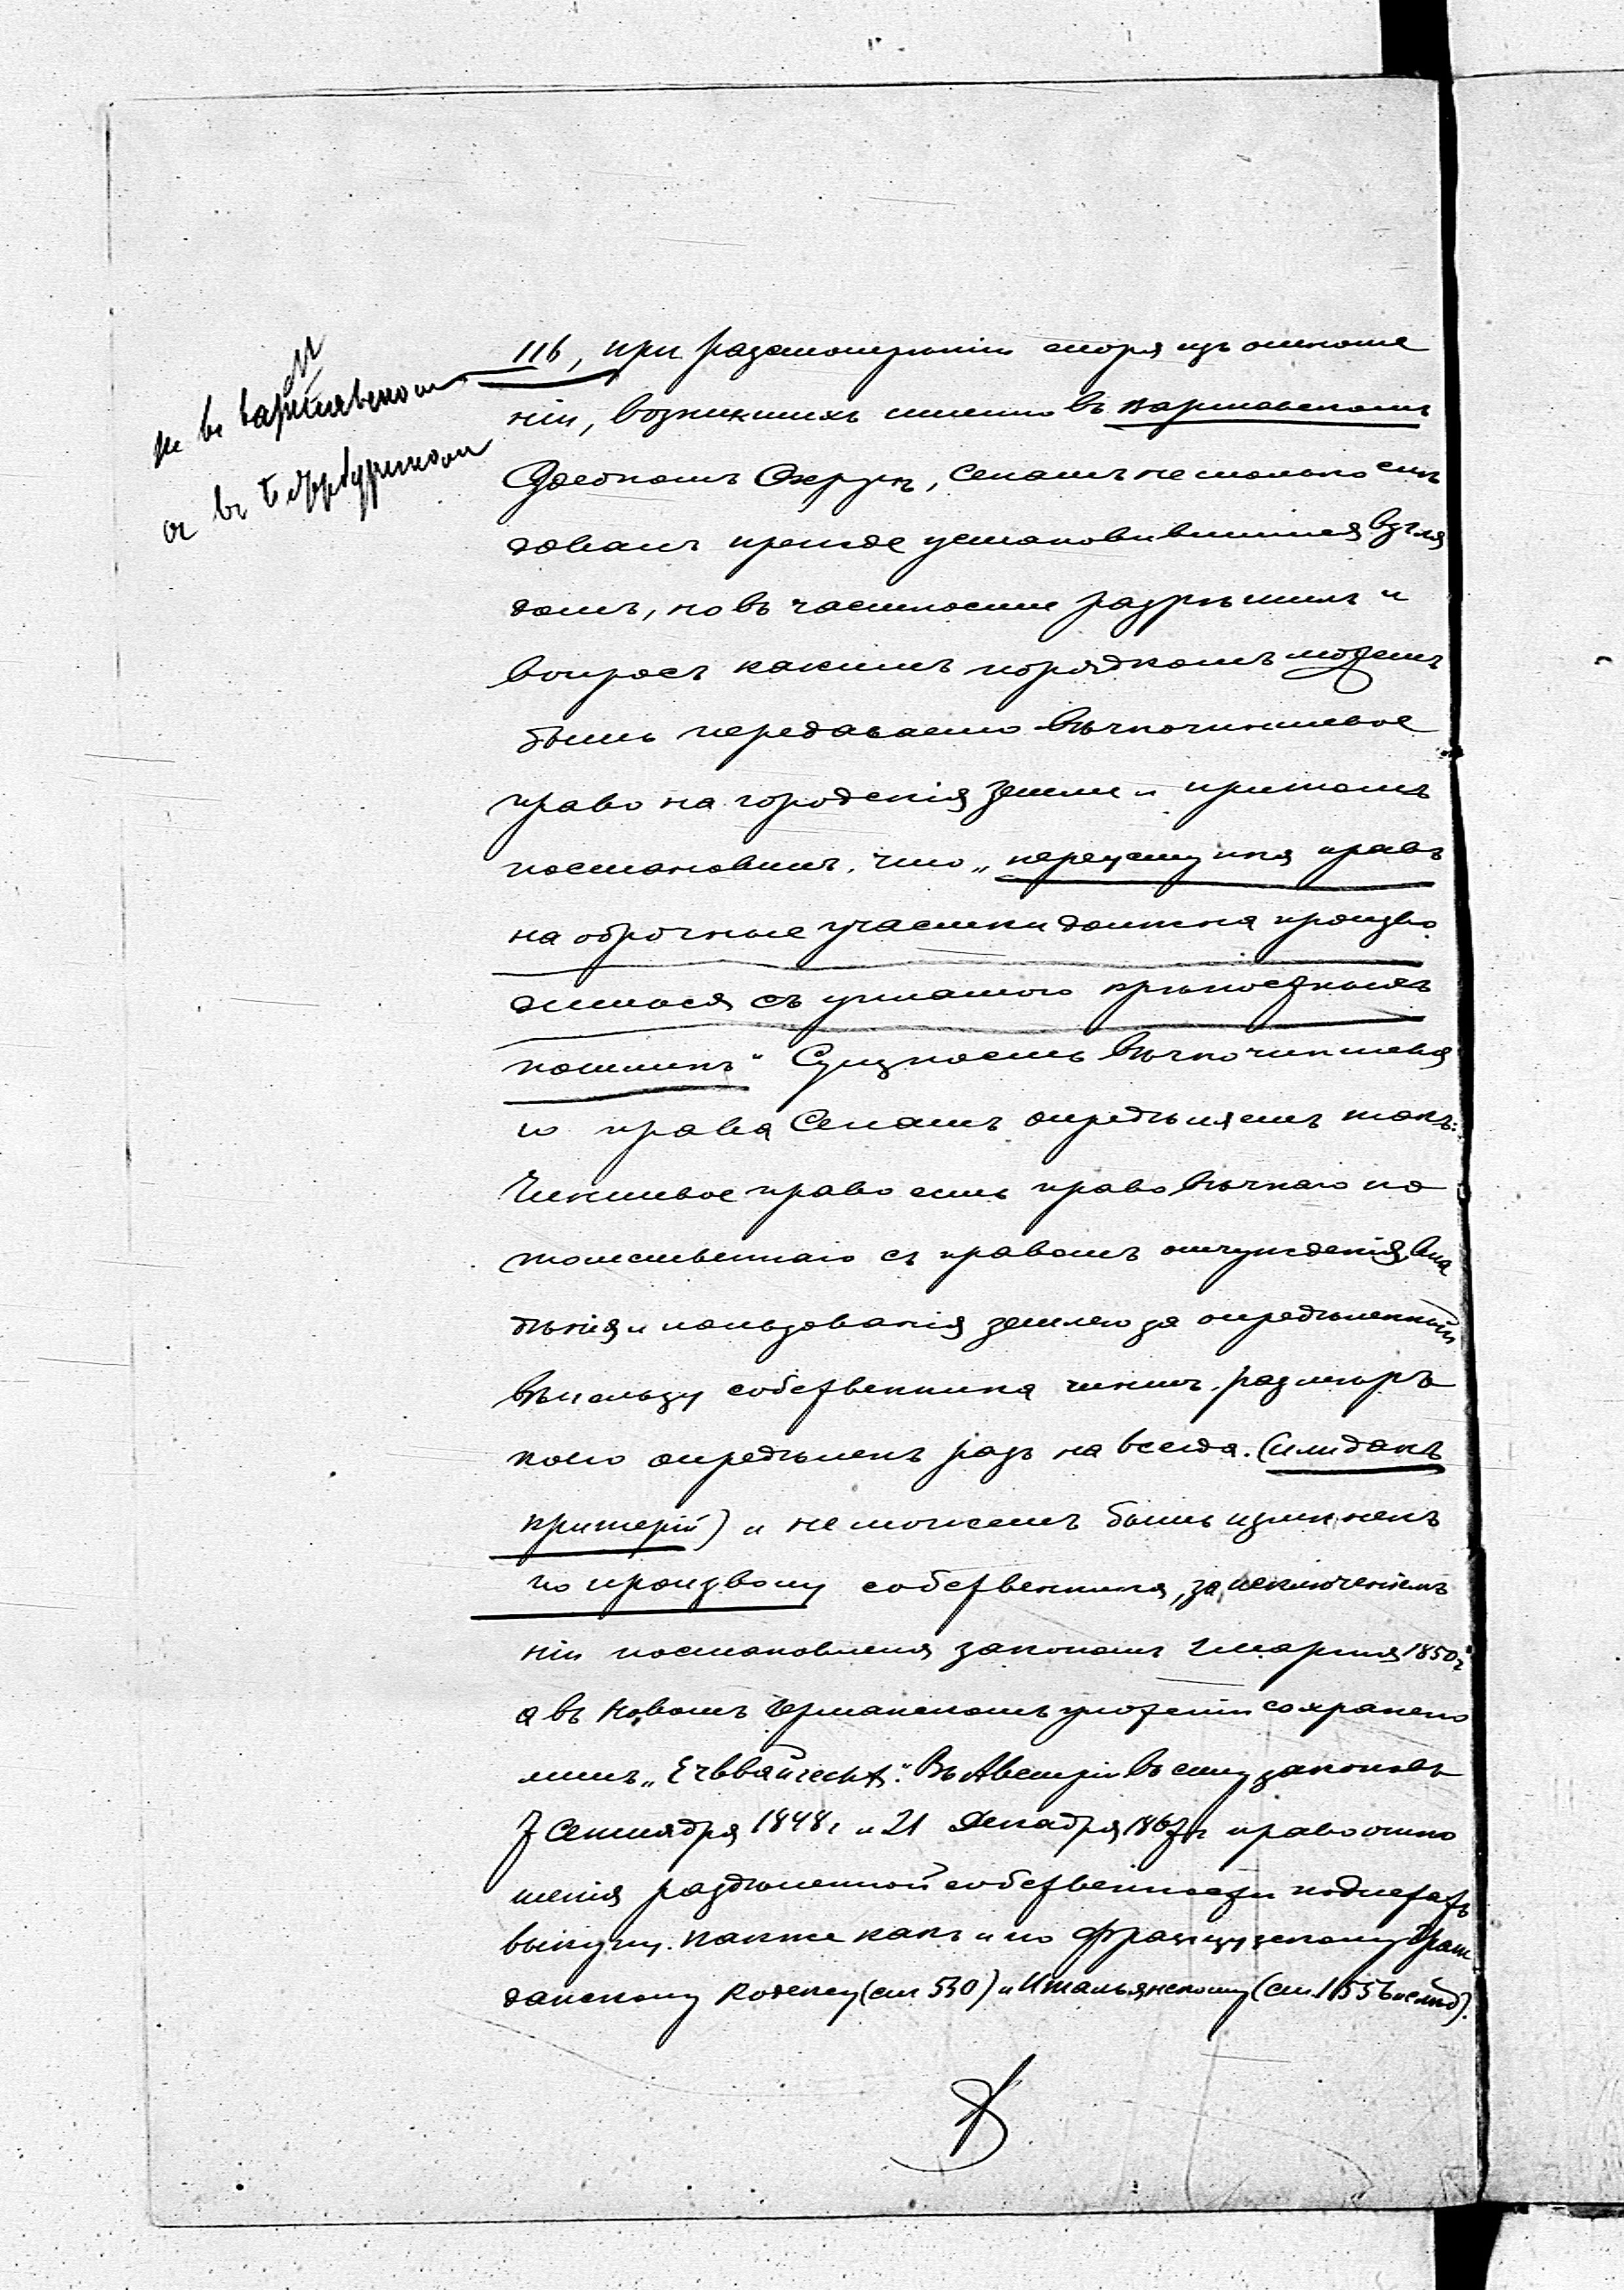 не въ варшавском
а въ Петербургском
116, при разсмотрѣніи спора изъ отноше
ній, возникшихъ именно въ варшавскомъ
Судебномъ Округѣ, Сенатъ не только слѣ
довалъ прежде установившимся взгля
домъ, но въ частности разрѣшилъ и
вопросъ какимъ порядкомъ можетъ
быть передаваемо вѣчночиншевое
право на городскія земли и притомъ
постановилъ, что „переуступка правъ
на оброчные участки должна произво
диться съ уплатою крѣпостныхъ
пошлинъ" Сущность вѣчночиншева
го права Сенатъ опредѣляетъ такъ:
Чиншевое право есть право вѣчнаго по
томственнаго съ правомъ отчужденія, вла
дѣнія и пользованія землею за опредѣленный
въ пользу собственника чиншъ, размѣръ
коего опредѣленъ разъ на всегда. (или данъ
критерій) и не можетъ быть измѣненъ
по произволу собственника, за исключеніемъ
ніи постановленія закономъ 2 марта 1850 г.
а въ новомъ Германскомъ уложеніи сохранено
лишь „Erbbaurecht." Въ Австріи въ силу законовъ
7 Сентября 1848 г. и 21 Декабря 1867 г. правоотно
шенія раздѣленной собственности подлежатъ
выкупу. также какъ и по Французскому Граж
данскому Кодексу (ст 530) и Итальянскому (ст. 1556 и слѣд).